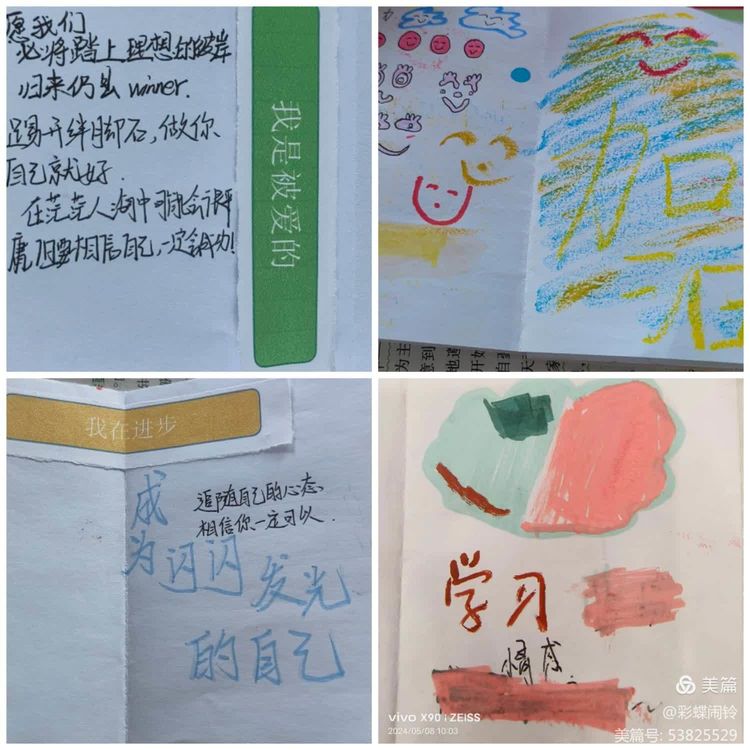 愿我们
必将踏上理想的彼岸
归来仍是 winner.
踢开绊脚石,做你
自己就好.
在茫茫人海中可能会很平
庸,但要相信自己,一定会成功!
我是被爱的
加
油
我在进步
成
为闪闪发光
的自己
追随自己的心态
相信你一定可以.
学习
情感
vivo X90 | ZEISS
2024/05/08 10:03
美篇
@彩蝶闹铃
美篇号: 53825529